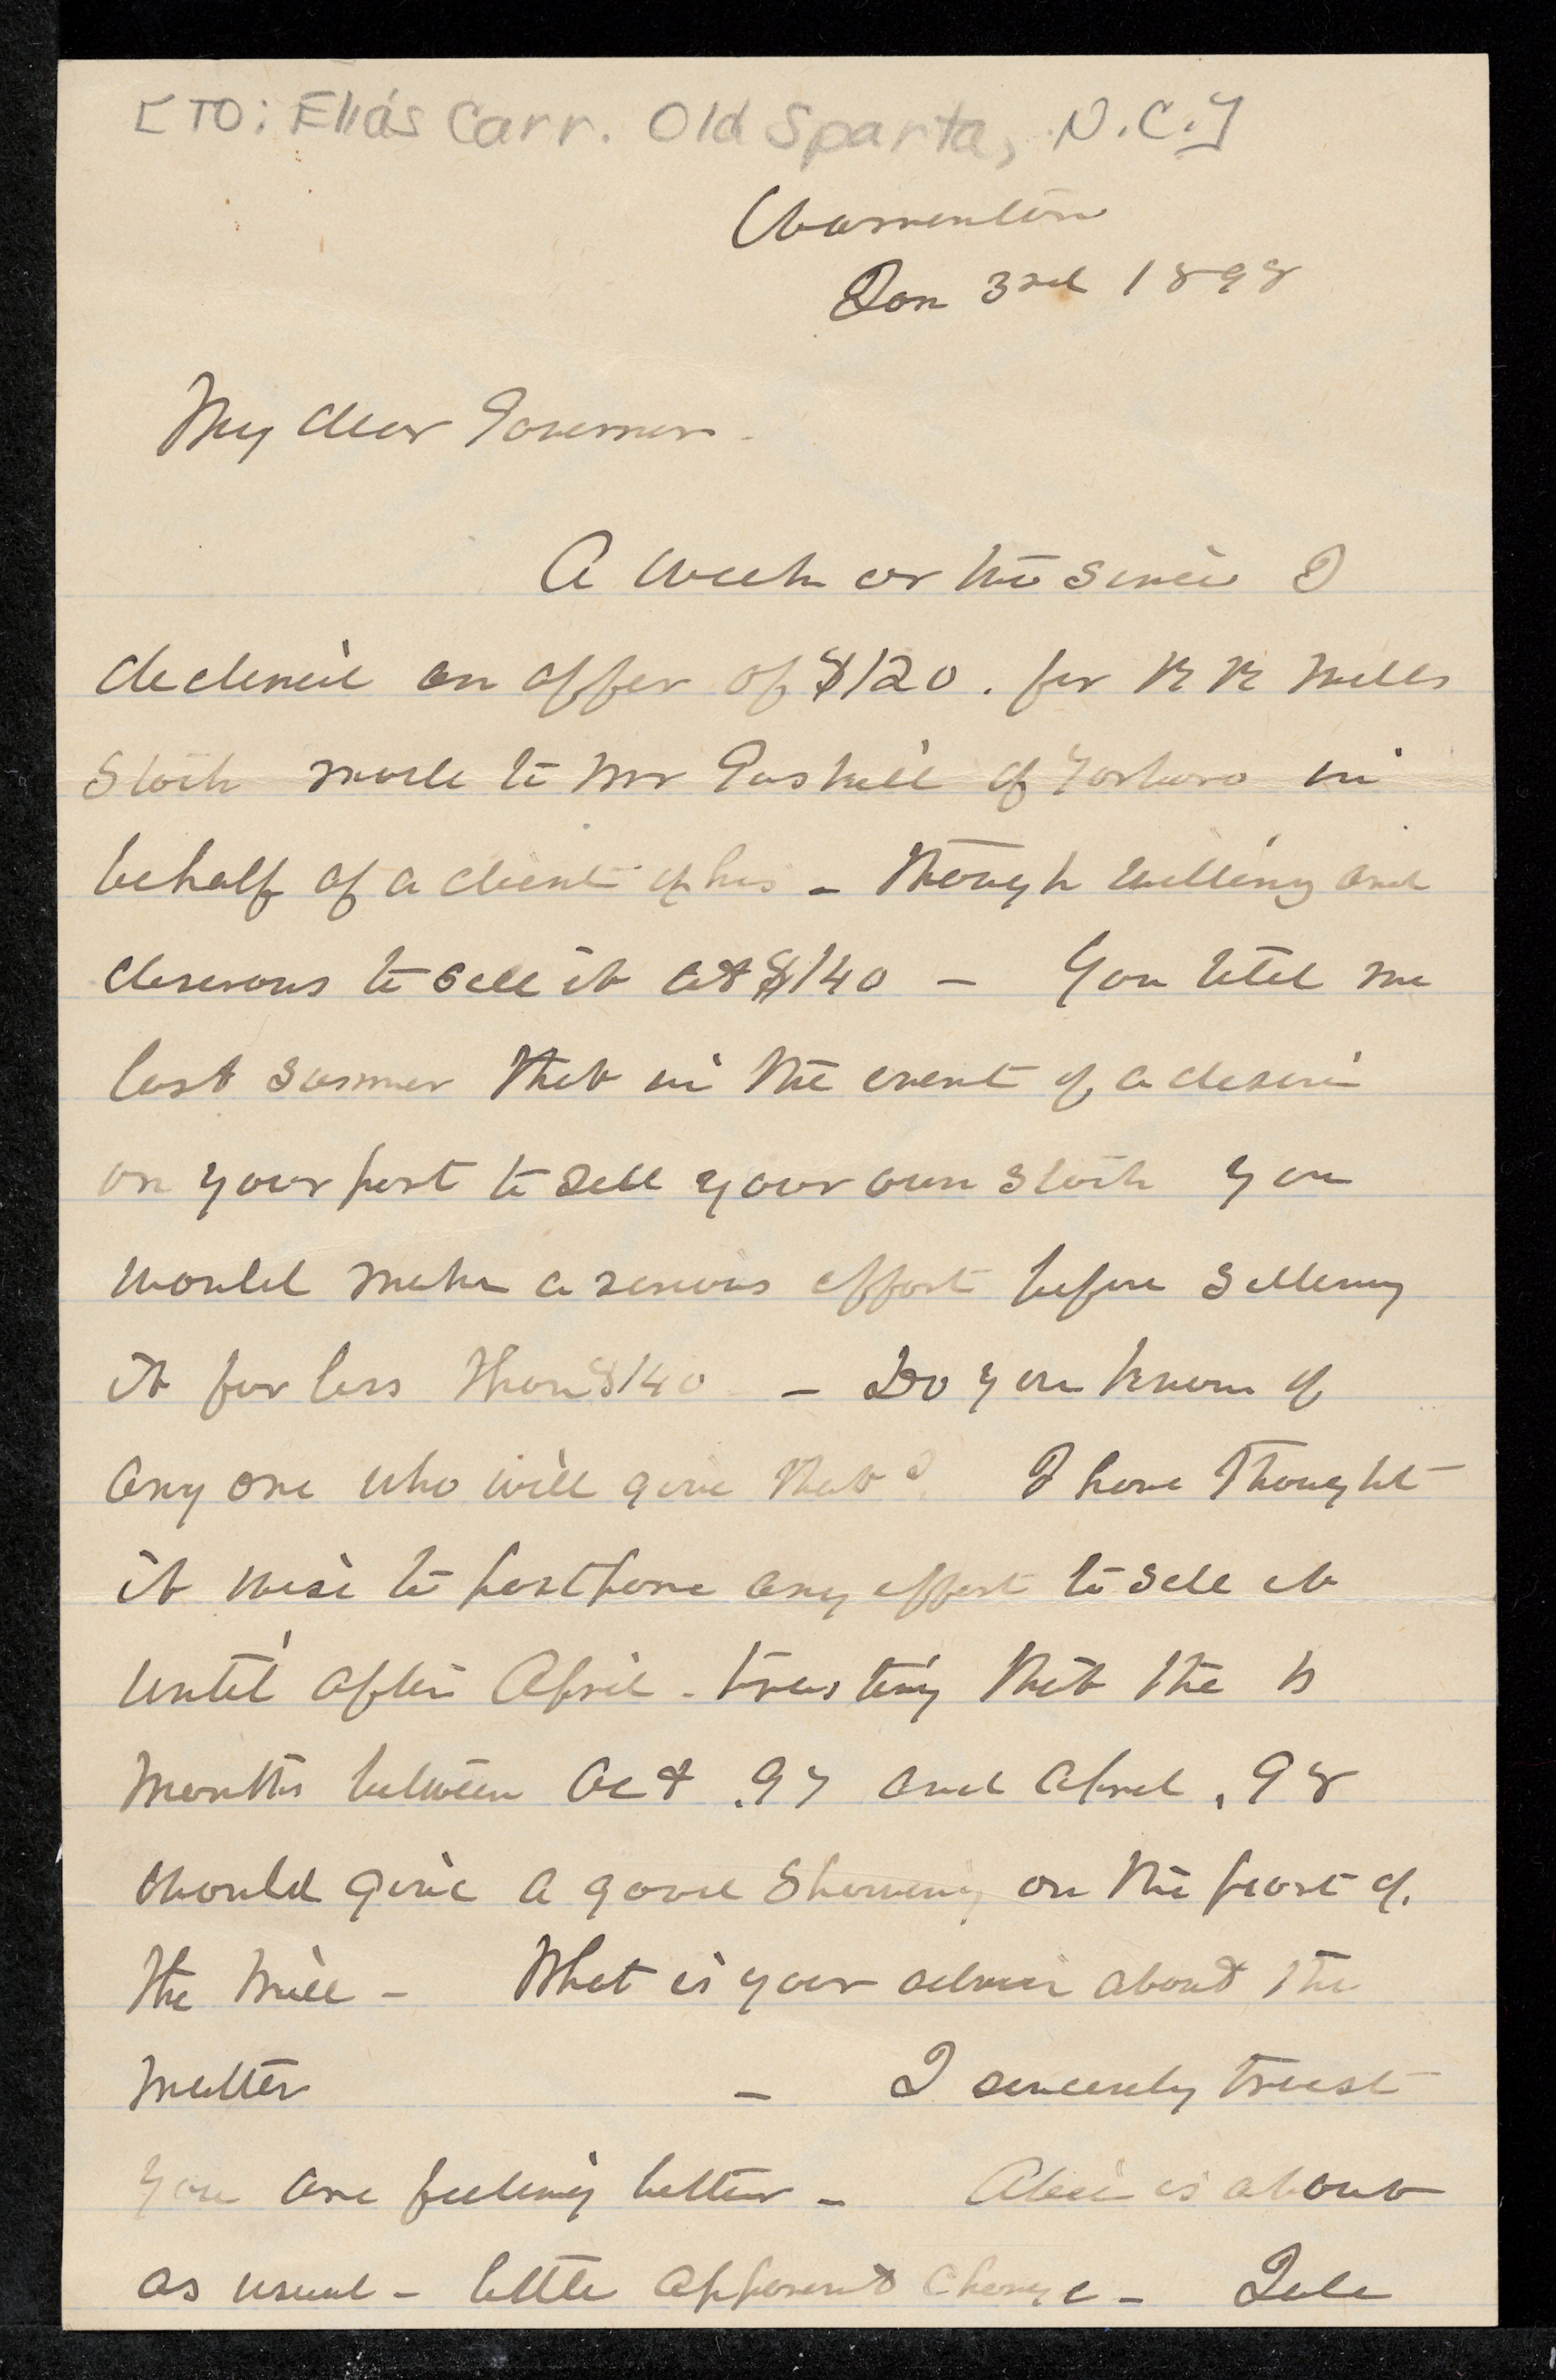 [TO: Elias Carr. Old Sparta, N.C.]
Warrenton
Jan 3rd 1898
My dear Governor.
A week or two since I
declined an offer of $120. for R R Mills
Stock made to Mr Gaskill of Tarboro in
behalf of a client of his - though willing and
desirous to sell it at $140 - You told me
last summer that in the event of a desire
on your part to sell your own stock you
would make a serious effort before selling
it for less than $140 - Do you know of
any one who will give that? I have thought
it wise to postpone any effort to sell it
until after April - trusting that the
months between Oct .97 and April .98
should give a good showing on the part of
the Mill - What is your advice about the
matter - I sincerely trust
you are feeling better - is about
as usual - little apparent change -